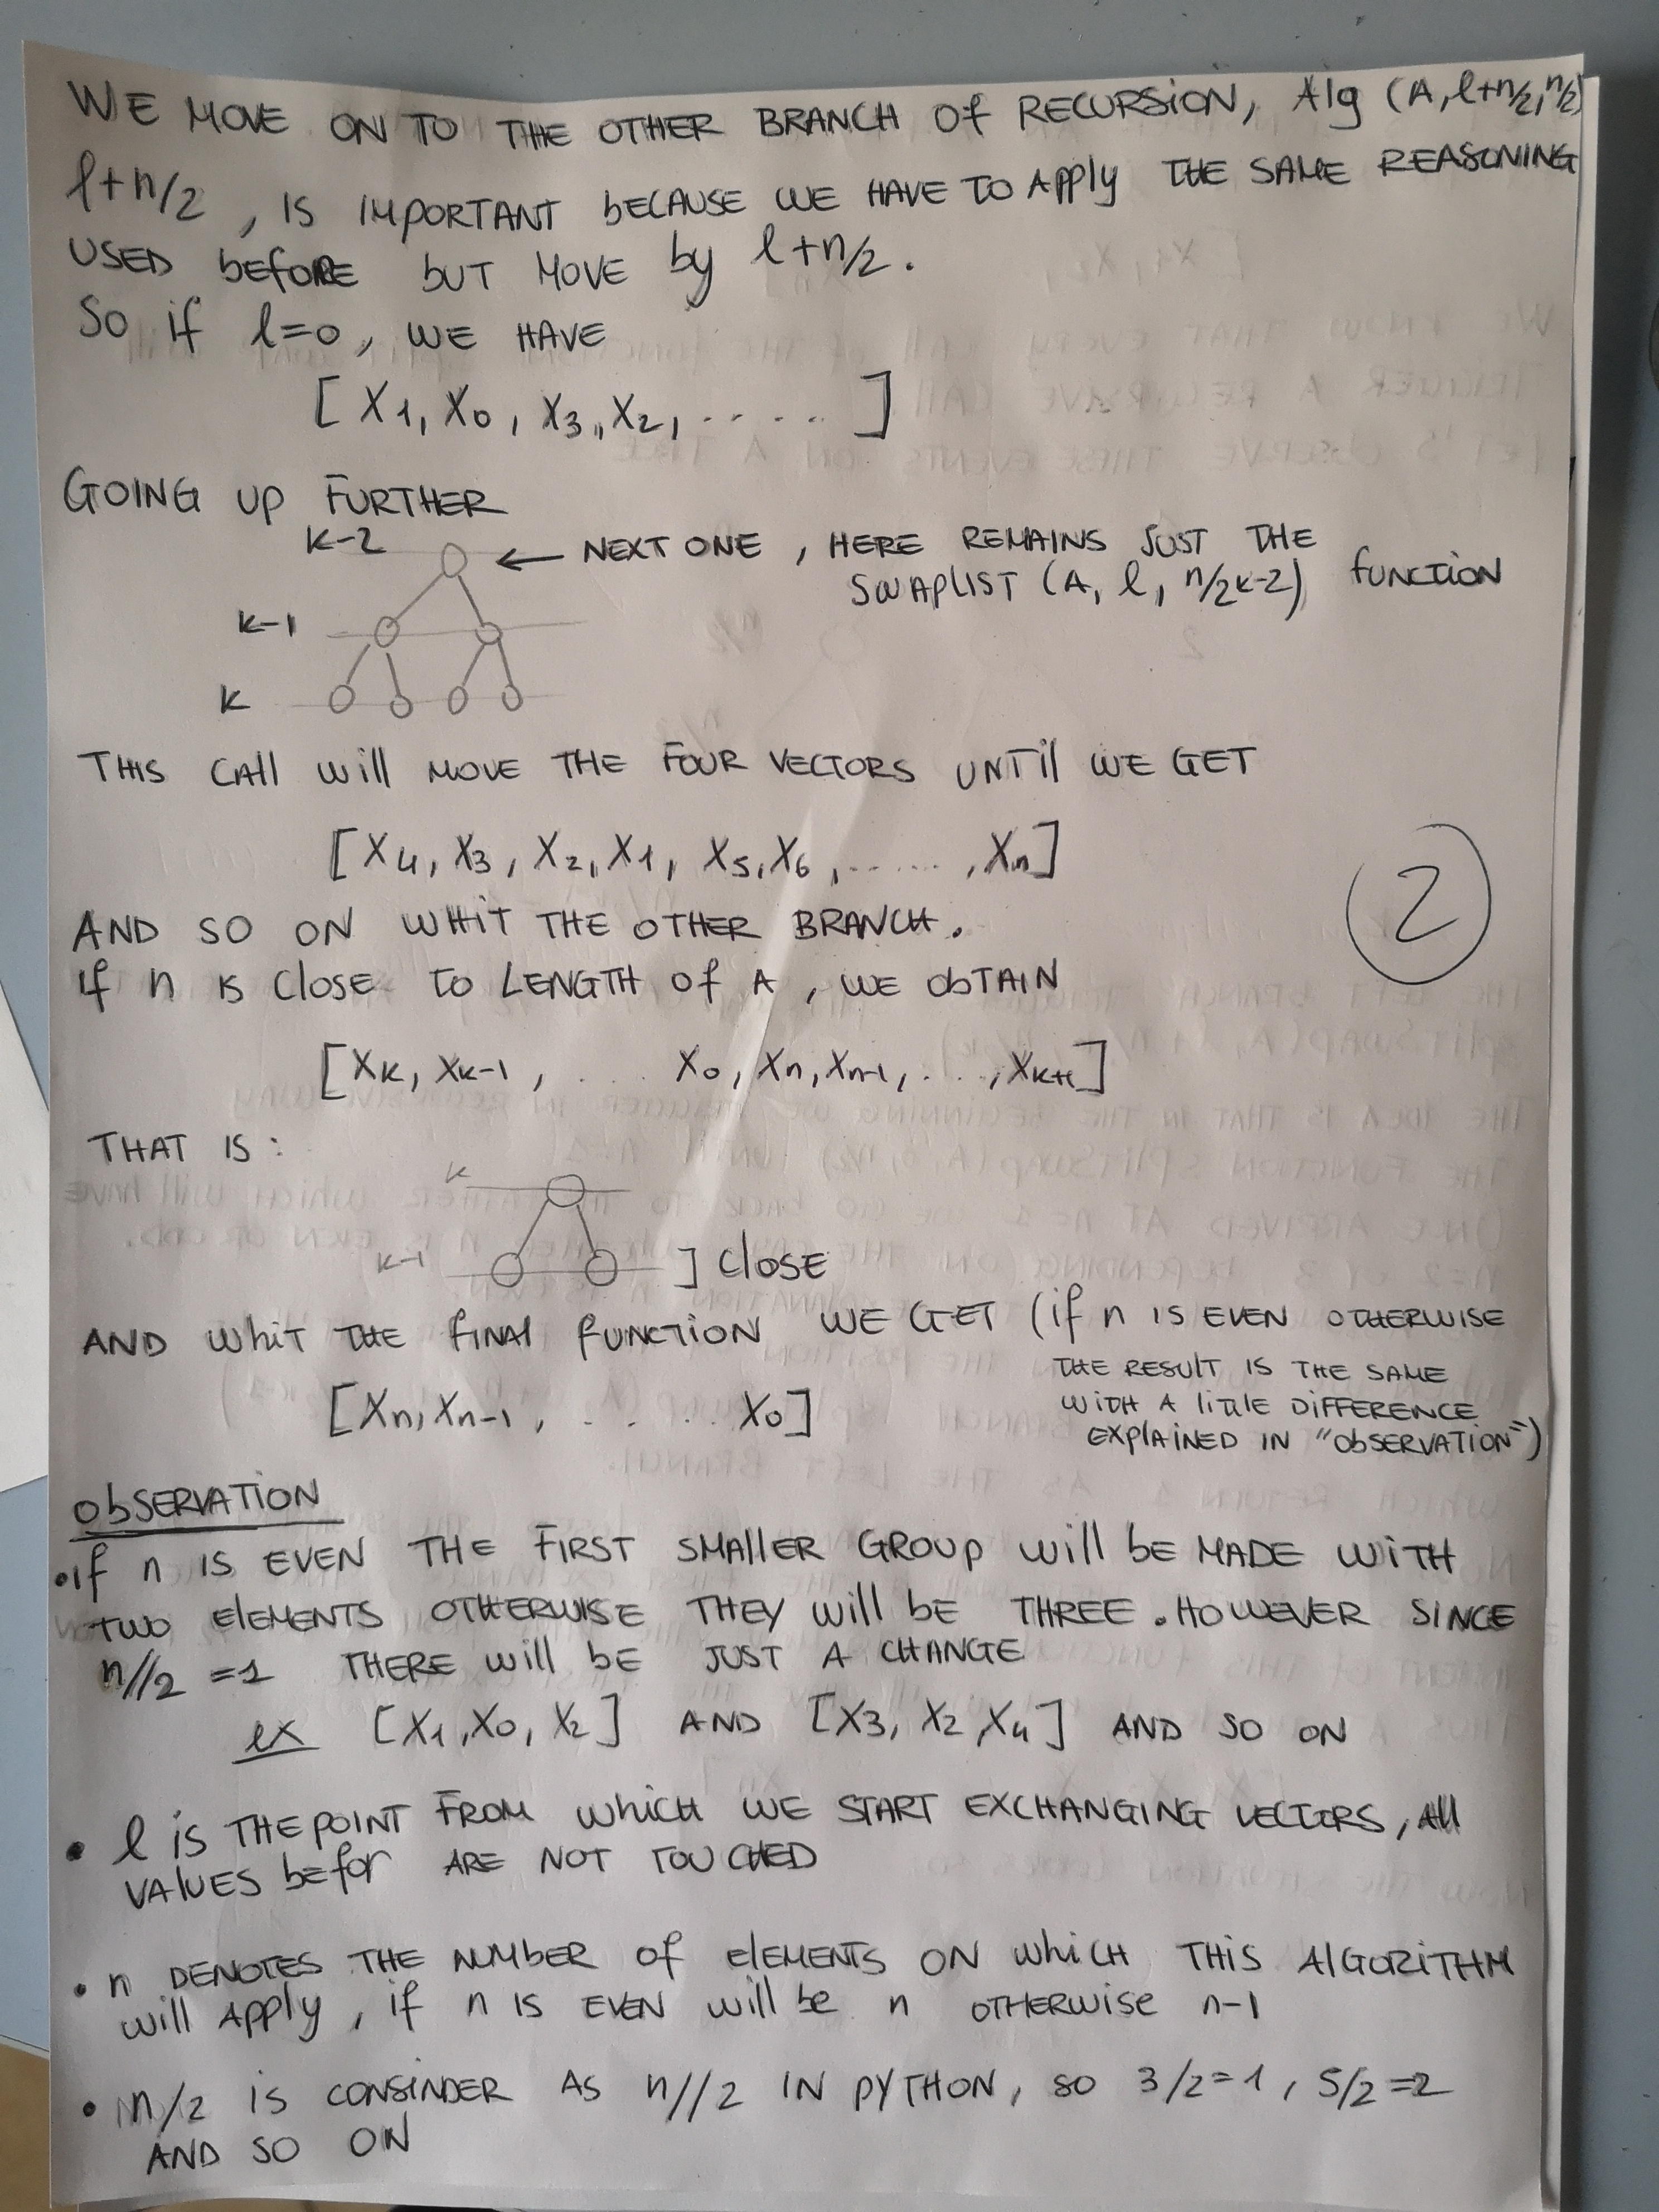 WE MOVE ON TO THE OTHER BRANCH Of RECURSION, Alg (A, l+n/2, n/2)
l+n/2 , IS IMPORTANT bECAUSE WE HAVE TO APPly THE SAME REASONING
USED bEfORE bUT MOVE by l+n/2.
So if l=0, WE HAVE
[X1, X0, X3, X2, ..... ]
GOING UP FURTHER
K-2 ← NEXT ONE, HERE REMAINS JUST THE
SWAPLIST (A, l, n/2k-2) fUNCTION
K-1
K
THIS CAll will MOVE THE FOUR VECTORS UNTIl WE GET
[X4, X3, X2, X1, X5, X6, ......, Xn]
AND SO ON WHIT THE OTHER BRANCH.
If n IS CloSE TO LENGTH Of A, WE ObTAIN
[XK, XK-1, . . . X0, Xn, Xn-1, . . ., XK+1]
2
THAT IS :
K
K-1 ] CloSE
AND WHIT THE fINAl fUNCTION WE GET (if n IS EVEN OTHERWISE
THE RESUlT IS THE SAME
WITH A liTTlE DIFFERENCE
EXPlAINED IN "ObSERVATION")
[Xn, Xn-1, . . . . X0]
ObSERVATION
• If n IS EVEN THE FIRST SMAllER GROUP will bE MADE WITH
TWO ElEMENTS OTHERWISE THEY will bE THREE. HOWEVER SINCE
n//2 =1 THERE will bE JUST A CHANGE
ex [X1, X0, X2] AND [X3, X2, X4] AND SO ON
• l iS THE POINT FROM WHICH WE START EXCHANGING VECTORS, All
VALUES bEfor ARE NOT TOUCHED
• n DENOTES THE NUMBER Of ElEMENTS ON WHICH THIS AlGORITHM
will APPly, if n IS EVEN will be n OTHERWISE n-1
• n/2 IS CONSINDER AS n//2 IN PYTHON, SO 3/2=1, 5/2=2
AND SO ON